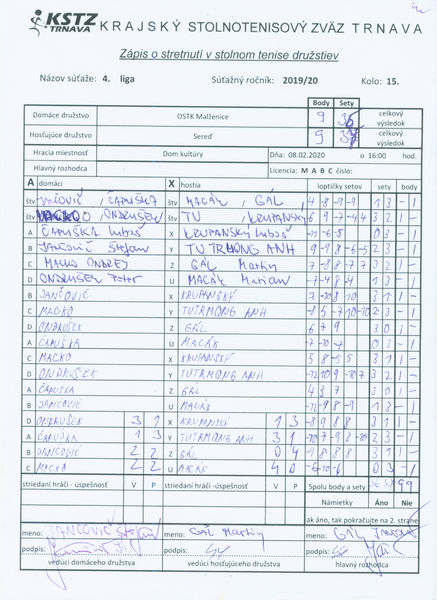 KSTZ TRNAVA KRAJSKÝ STOLNOTENISOVÝ ZVÄZ TRNAVA
Zápis o stretnutí v stolnom tenise družstiev
Názov súťaže: 4. liga Súťažný ročník: 2019/20 Kolo: 15.
Body Sety
Domáce družstvo OSTK Malženice 9 celkový výsledok
Hosťujúce družstvo Sereď 9 celkový výsledok
Hracia miestnosť Dom kultúry Dňa: 08.02.2020 o 16:00 hod.
Hlavný rozhodca Licencia: M A B C číslo:
A domáci X hostia loptičky setov sety body
štv JANČOVIČ, ČAPUŠKA štv MACÁK, GÁL 4 -8 -9 -9 1 3 - 1
štv MACKO, ONDRUŠEK štv TU, KRUPANSKÝ 3 2 1 -
A ČAPUŠKA Ľuboš X KRUPANSKÝ Ľuboš 0 3 - 1
B JANČOVIČ Štefan Y TU TRMONG ANH 2 3 - 1
C MACKO ONDREJ Z GÁL Martin 3 2 1 -
D ONDRUŠEK Peter U MACÁK Marian 1 3 - 1
B JANČOVIČ X KRUPANSKÝ 3 1 1 -
C MACKO Y TUTRMONG ANH 2 3 - 1
D ONDRUŠEK Z GÁL 6 7 9 3 0 1 -
A ČAPUŠKA U MACÁK -7 -10 -7 0 3 - 1
C MACKO X KRUPANSKÝ 5 8 -5 5 3 1 1 -
D ONDRUŠEK Y TUTRMONG ANH 3 2 1 -
A ČAPUŠKA Z GÁL 4 3 7 3 0 1 -
B JANČOVIČ U MACÁK 1 3 - 1
D ONDRUŠEK 3 1 X KRUPANSKÝ 1 3 -9 8 8 8 3 1 1 -
A ČAPUŠKA 1 3 Y TUTRMONG ANH 3 1 2 3 - 1
B JANČOVIČ 2 2 Z GÁL 0 4 3 1 1 -
C MACKO 2 2 U MACÁK 4 0 -6 -10 -6 0 3 - 1
striedaní hráči - úspešnosť V P striedaní hráči - úspešnosť V P Spolu body a sety 9 9
Námietky Áno Nie
ak áno, tak pokračujte na 2. strane
meno: JANČOVIČ Štefan meno: GÁL Martin meno: GÁL
podpis: podpis: podpis:
vedúci domáceho družstva vedúci hosťujúceho družstva hlavný rozhodca